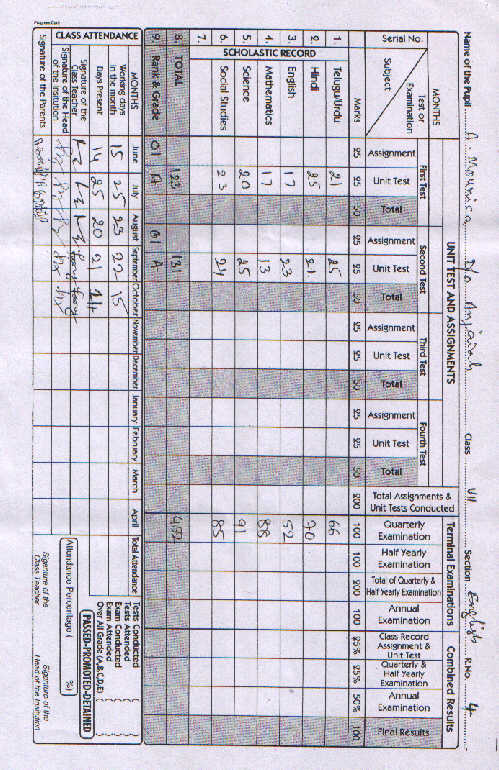 Progress Card
Name of the Pupil A. Mounisa D/o Anjaiah Class VII Section English R.No. 4
MONTHS UNIT TEST AND ASSIGNMENTS Terminal Examinations Combined Results
Test or Examination First Test Second Test Third Test Fourth Test
Serial No. Subject Marks Assignment Unit Test Total Assignment Unit Test Total Assignment Unit Test Total Assignment Unit Test Total Total Assignments & Unit Tests Conducted Quarterly Examination Half Yearly Examination Total of Quarterly & Half Yearly Examination Annual Examination Class Record Assignment & Unit Test Quarterly & Half Yearly Examination Annual Examination Final Results
25 25 50 25 25 50 25 25 50 25 25 50 200 100 100 200 100 25% 25% 50% 100
SCHOLASTIC RECORD
1. Telugu/Urdu 21 25 66
2. Hindi 25 21 70
3. English 17 23 52
4. Mathematics 17 13 88
5. Science 20 25 91
6. Social Studies 23 24 85
7.
8. TOTAL 123 131
9. Rank & Grade 01 A 01 A
CLASS ATTENDANCE
MONTHS June July August September October November December January February March April Total Attendance
Working days in the month 15 25 23 22 15
Days Present 14 25 20 21 14
Signature of the Class Teacher
Signature of the Head of the Institution
Signature of the Parents
Tests Conducted
Tests Attended
Exam Conducted
Exam Attended
Over All Grade (A,B,C,D,E)
PASSED-PROMOTED-DETAINED
Attendance Percentage ( %)
Signature of the Class Teacher
Signature of the Head of the Institution